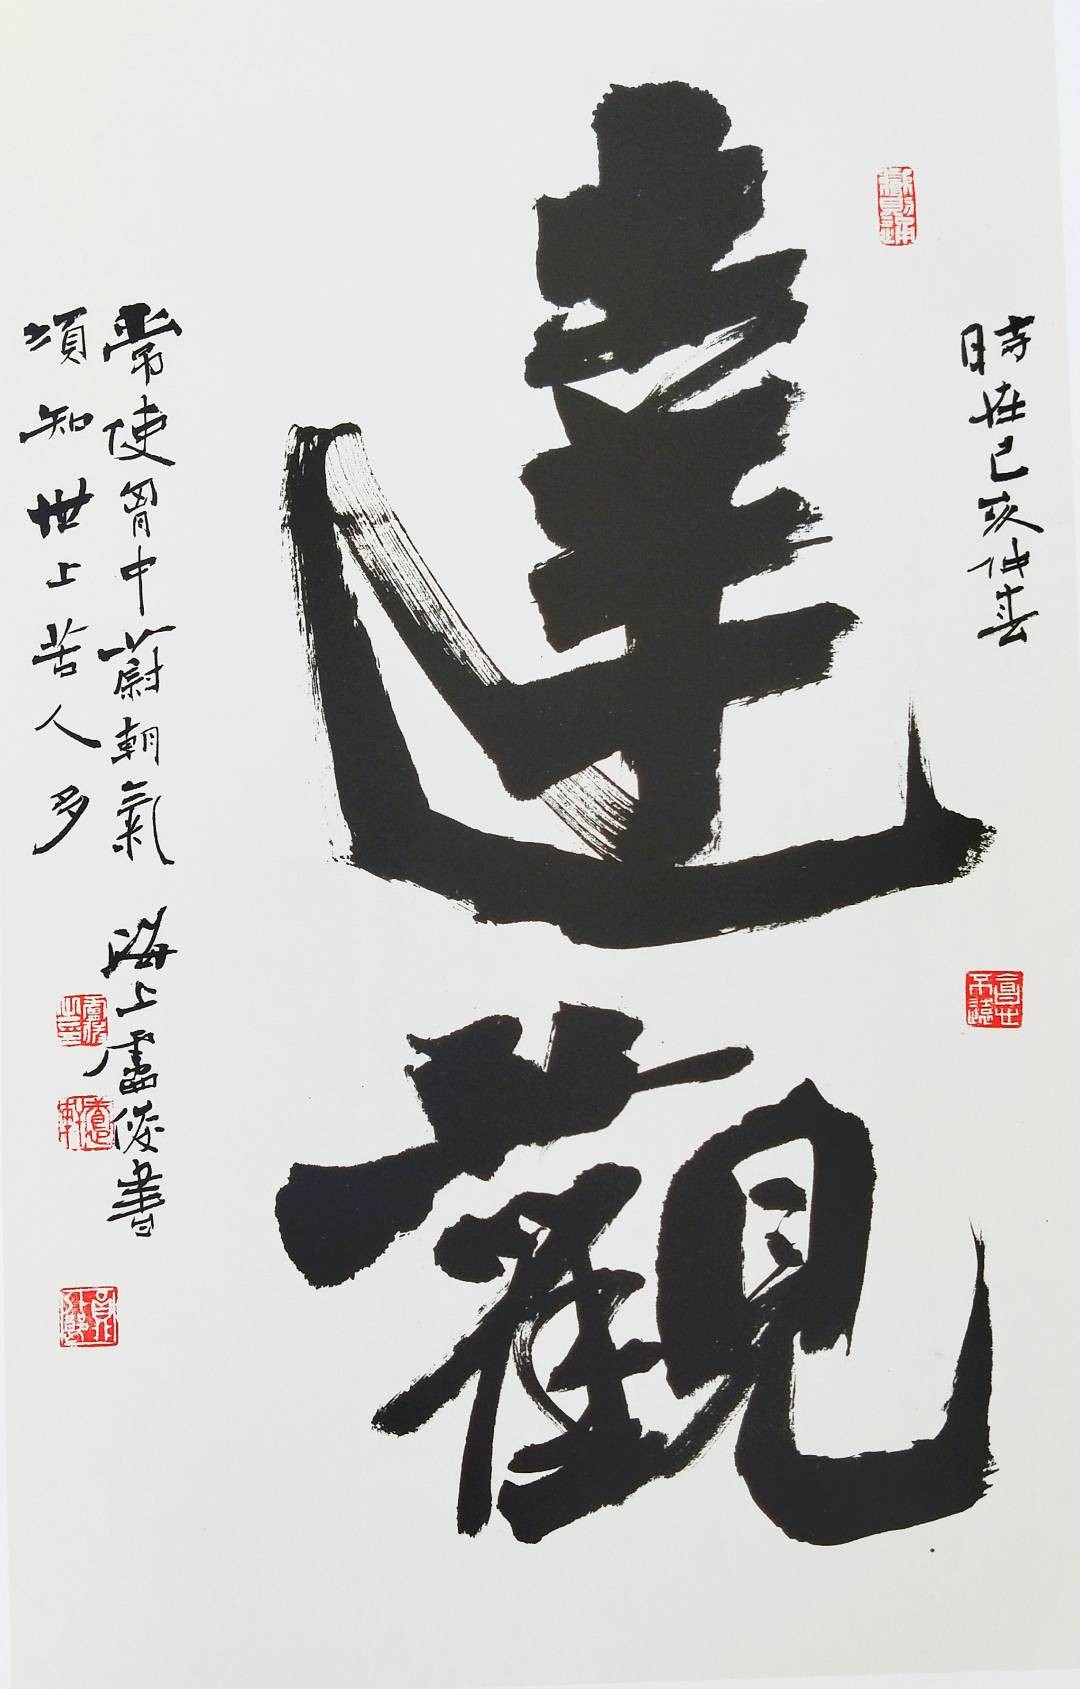 時在己亥仲春
達觀
常使胷中蔚朝氣
須知世上苦人多
海上盧俊書